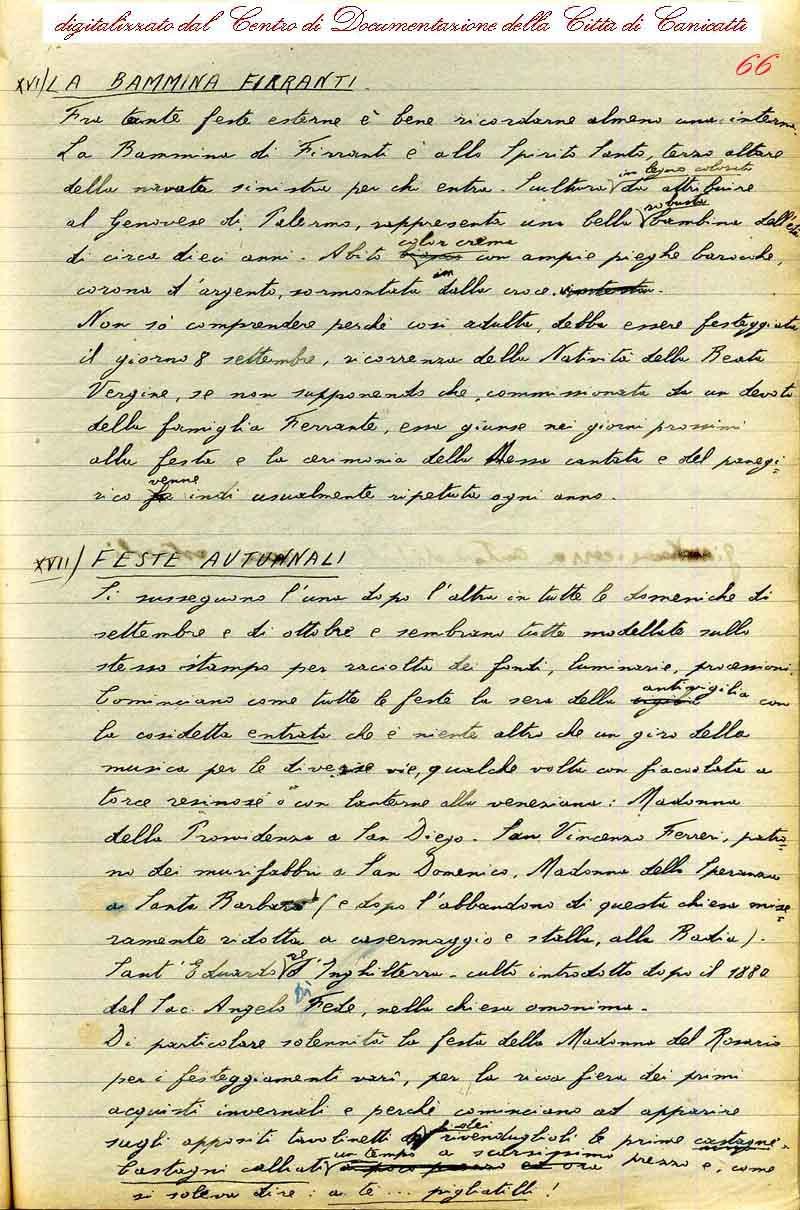 digitalizzato dal Centro di Documentazione della Città di Canicattì
66
XVI/ LA BAMMINA FIRRANTI.
Fra tante feste esterne è bene ricordarne almeno una interna.
La Bammina di Firranti è allo Spirito Santo, terzo altare
in legno colorato
della navata sinistra per chi entra. Scultura da attribuire
robusta
al Genovese di Palermo, rappresenta una bella bambina dell'età
color crema
di circa dieci anni. Abito con ampie pieghe barocche,
corona d'argento, sormontata dalla croce.
Non so comprendere perché così adulta, debba essere festeggiata
il giorno 8 settembre, ricorrenza della Natività della Beata
Vergine, se non supponendo che, commissionata da un devoto
della famiglia Ferrante, essa giunse nei giorni prossimi
alla festa e la cerimonia della Messa cantata e del panegi=
venne
rico indi usualmente ripetuta ogni anno.
XVII/ FESTE AUTUNNALI
Si susseguono l'una dopo l'altra in tutte le domeniche di
settembre e di ottobre e sembrano tutte modellate sullo
stesso stampo per raccolta dei fondi, luminarie, processioni.
antivigilia
Cominciano come tutte le feste la sera della con
la cosidetta entrata che è niente altro che un giro della
musica per le diverse vie, qualche volta con fiaccolata a
torce resinose o con lanterne alla veneziana: Madonna
della Provvidenza a San Diego. San Vincenzo Ferreri, patro=
no dei murifabbri a San Domenico, Madonna della Speranza
a Santa Barbara (e dopo l'abbandono di questa chiesa mise=
ramente ridotta a casermaggio e stalla, alla Badia).
re
Sant'Eduardo d'Inghilterra - culto introdotto dopo il 1880
dal Sac. Angelo Di Fede, nella chiesa omonima.
Di particolare solennità la festa della Madonna del Rosario
per i festeggiamenti varî, per la ricca fiera dei primi
acquisti invernali e perché cominciano ad apparire
sugli appositi tavolinetti dei rivenduglioli le prime castagne.
un tempo a scarsissimo prezzo e, come
Castagni calliati
si soleva dire: a te... pigliatilli!